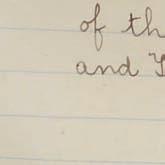 of th
and